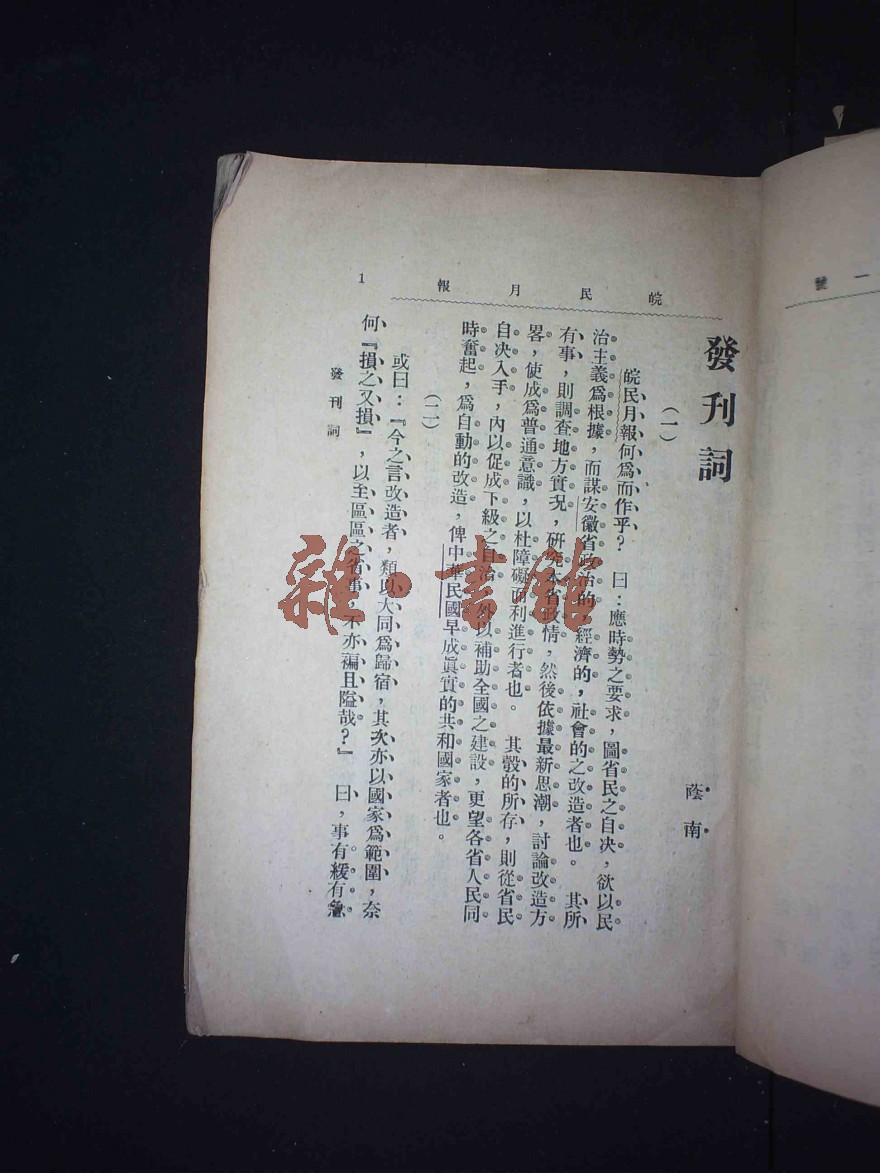 皖民月報
1
發刊詞
蔭南
（一）
皖民月報何爲而作乎？　曰：應時勢之要求，圖省民之自决，欲以民
治主義爲根據，而謀安徽省政治的，經濟的，社會的之改造者也。　其所
有事，則調查地方實况，研究本省政情，然後依據最新思潮，討論改造方
畧，使成爲普通意識，以杜障礙而利進行者也。　其彀的所存，則從省民
自决入手，內以促成下級之自治，外以補助全國之建設，更望各省人民同
時奮起，爲自動的改造，俾中華民國早成眞實的共和國家者也。
（二）
或曰：『今之言改造者，類以大同爲歸宿，其次亦以國家爲範圍，奈
何『損之又損』，以至區區之省事，不亦褊且隘哉？』　曰，事有緩有急
發刊詞
一號
雜·書館